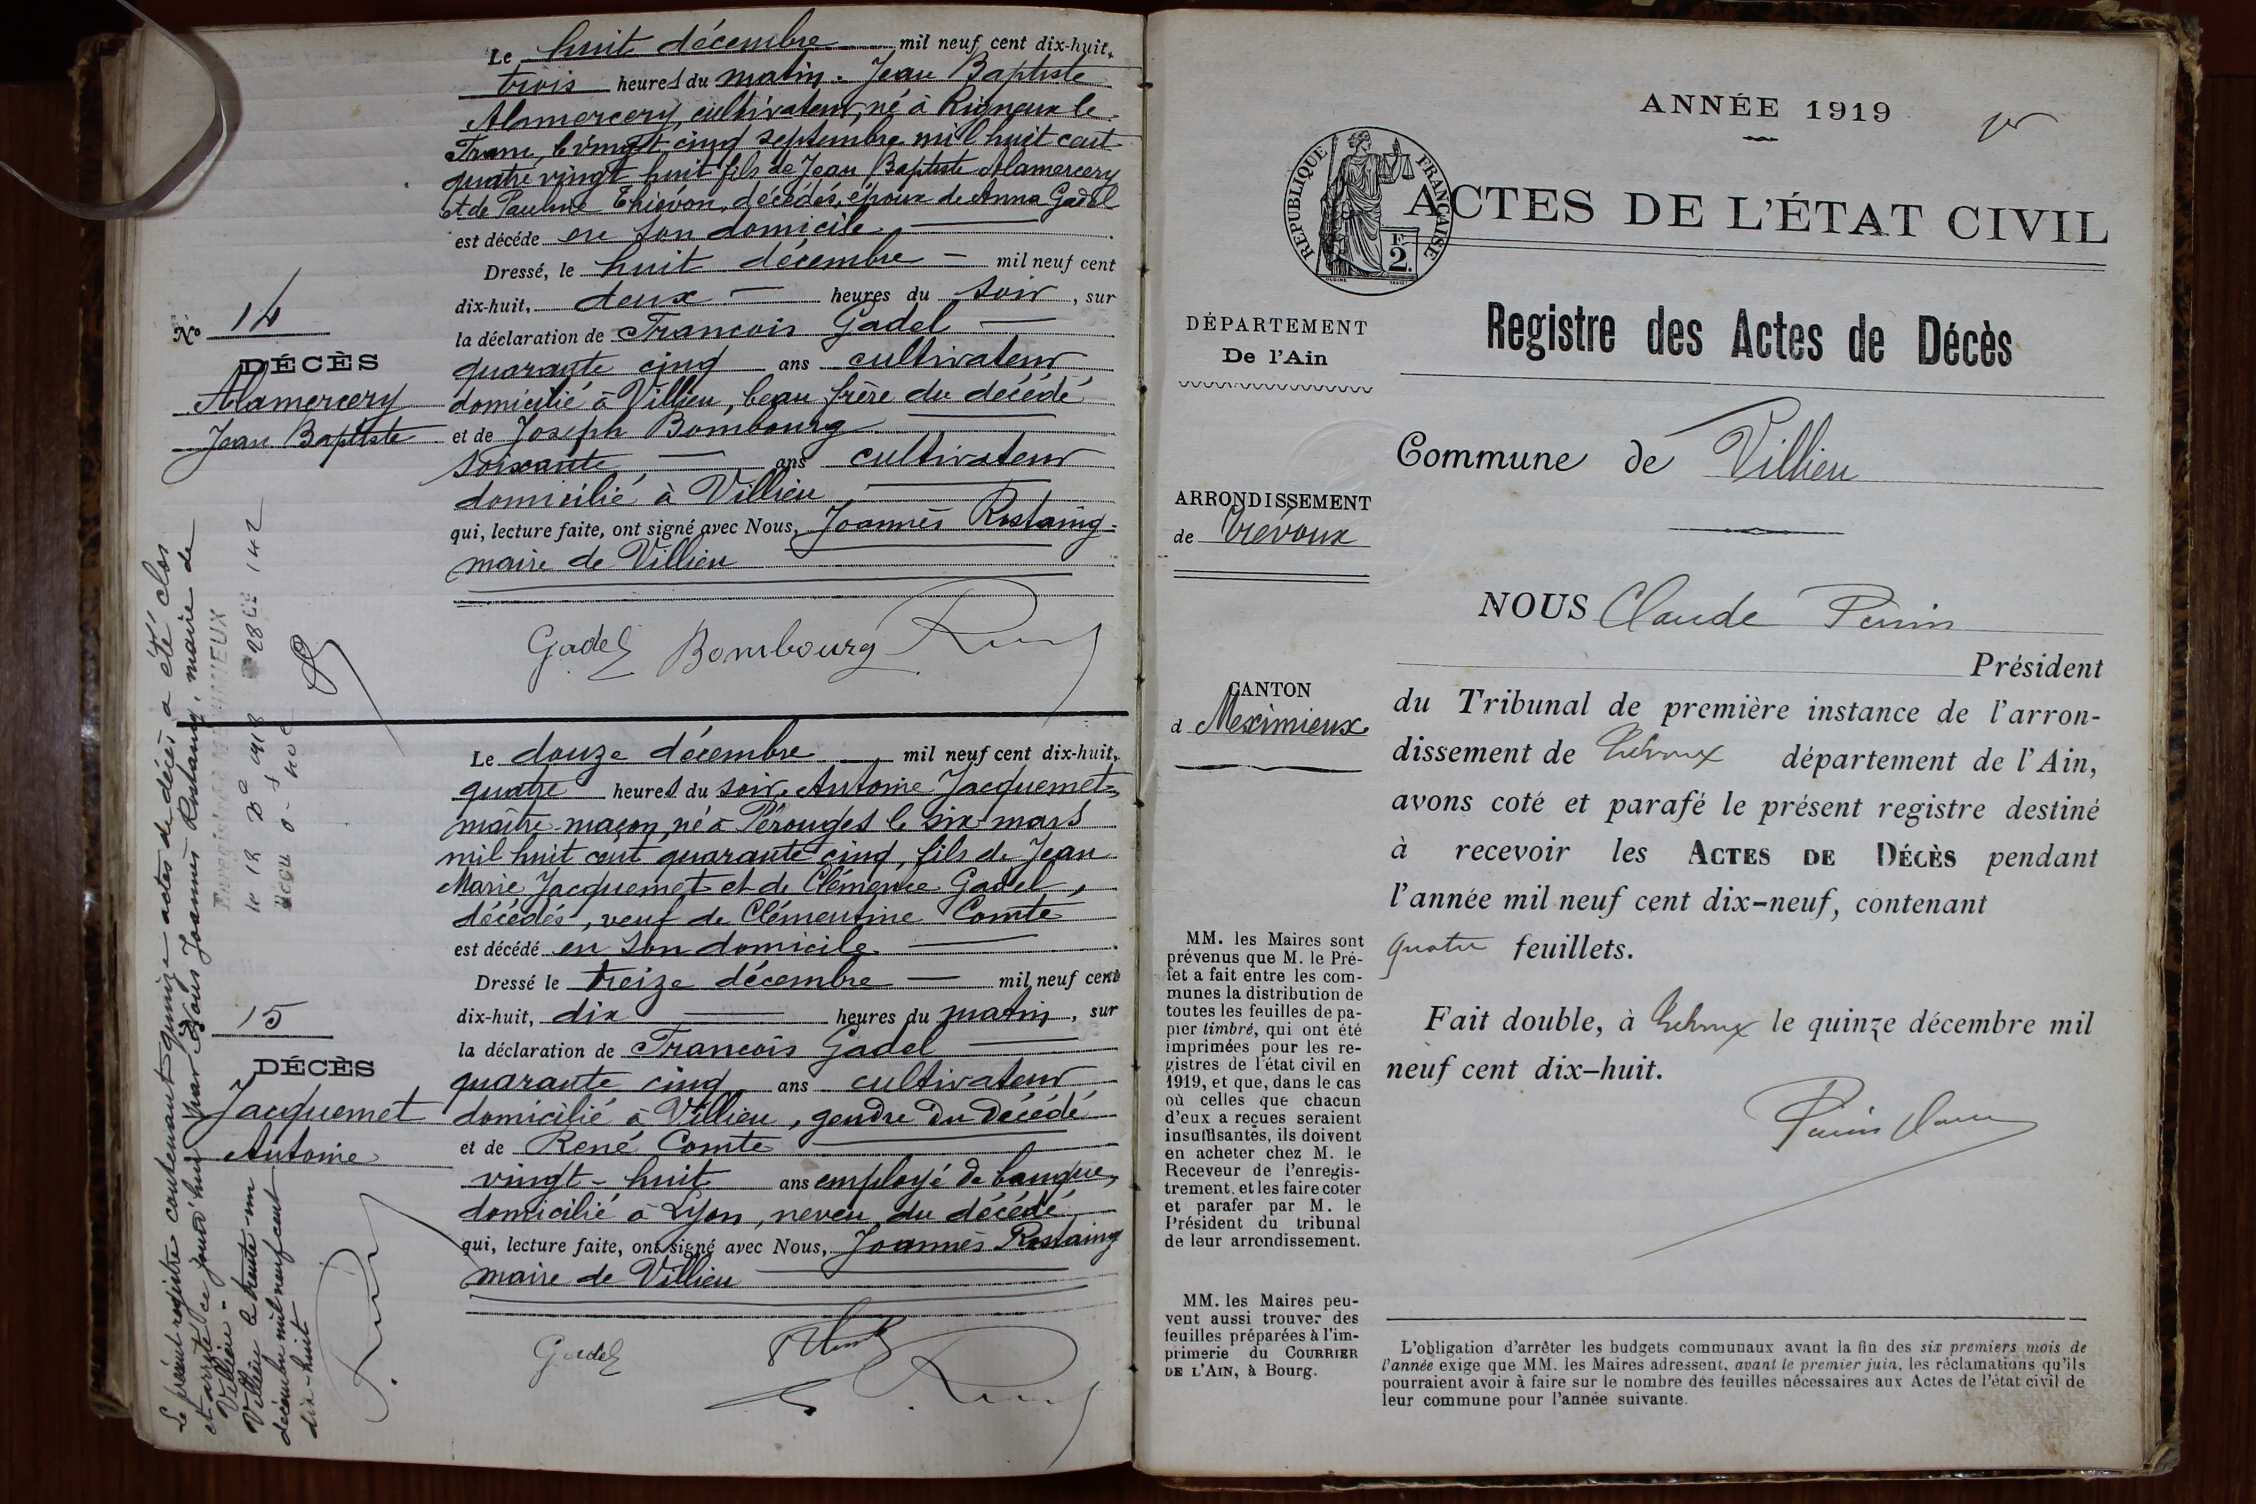 Le huit décembre mil neuf cent dix-huit,
trois heures du matin. Jean Baptiste
Alamercery, cultivateur, né à Rigneux le
Franc, le vingt cinq septembre mil huit cent
quatre vingt huit fils de Jean Baptiste Alamercery
et de Pauline Thiévon, décédés, époux de Anna Gadel
est décédé en son domicile
Dressé, le huit décembre mil neuf cent
dix-huit, deux heures du soir, sur
la déclaration de Francois Gadel
quarante cinq ans cultivateur
domicilié à Villieu, beau frère du décédé
et de Joseph Bombourg
soixante ans cultivateur
domicilié à Villieu
qui, lecture faite, ont signé avec Nous, Joannès Rostaing
maire de Villieu
Gadel Bombourg
No 14
DÉCÈS
Alamercery
Jean Baptiste
Le douze décembre mil neuf cent dix-huit,
quatre heures du soir, Antoine Jacquemet
maître-maçon, né à Pérouges le six mars
mil huit cent quarante cinq, fils de Jean
Marie Jacquemet et de Clémence Gadel,
décédés, veuf de Clémentine Comte
est décédé en son domicile
Dressé le treize décembre mil neuf cent
dix-huit, dix heures du matin, sur
la déclaration de Francois Gadel
quarante cinq ans cultivateur
domicilié à Villieu, gendre du décédé
et de René Comte
vingt-huit ans employé de banque,
domicilié à Lyon, neveu du décédé
qui, lecture faite, ont signé avec Nous, Joannès Rostaing
maire de Villieu
Gadel
15
DÉCÈS
Jacquemet
Antoine
Le présent registre contenant quinze actes de décès a été clos
et arrêté ce jourd'hui par Nous Joannès Rostaing, maire de
Villieu -
Villieu le trente-un
décembre mil neuf cent
dix-huit
ANNÉE 1919
RÉPUBLIQUE FRANÇAISE
F.
2.
ACTES DE L'ÉTAT CIVIL
Registre des Actes de Décès
DÉPARTEMENT
De l'Ain
Commune de Villieu
ARRONDISSEMENT
de Trévoux
CANTON
d Meximieux
NOUS Claude Perrin
Président
du Tribunal de première instance de l'arron-
dissement de Trévoux département de l'Ain,
avons coté et parafé le présent registre destiné
à recevoir les ACTES DE DÉCÈS pendant
l'année mil neuf cent dix-neuf, contenant
quatre feuillets.
Fait double, à Trévoux le quinze décembre mil
neuf cent dix-huit.
MM. les Maires sont
prévenus que M. le Pré-
fet a fait entre les com-
munes la distribution de
toutes les feuilles de pa-
pier timbré, qui ont été
imprimées pour les re-
gistres de l'état civil en
1919, et que, dans le cas
où celles que chacun
d'eux a reçues seraient
insuffisantes, ils doivent
en acheter chez M. le
Receveur de l'enregis-
trement, et les faire coter
et parafer par M. le
Président du tribunal
de leur arrondissement.
MM. les Maires peu-
vent aussi trouver des
feuilles préparées à l'im-
primerie du COURRIER
DE L'AIN, à Bourg.
L'obligation d'arrêter les budgets communaux avant la fin des six premiers mois de
l'année exige que MM. les Maires adressent, avant le premier juin, les réclamations qu'ils
pourraient avoir à faire sur le nombre des feuilles nécessaires aux Actes de l'état civil de
leur commune pour l'année suivante.